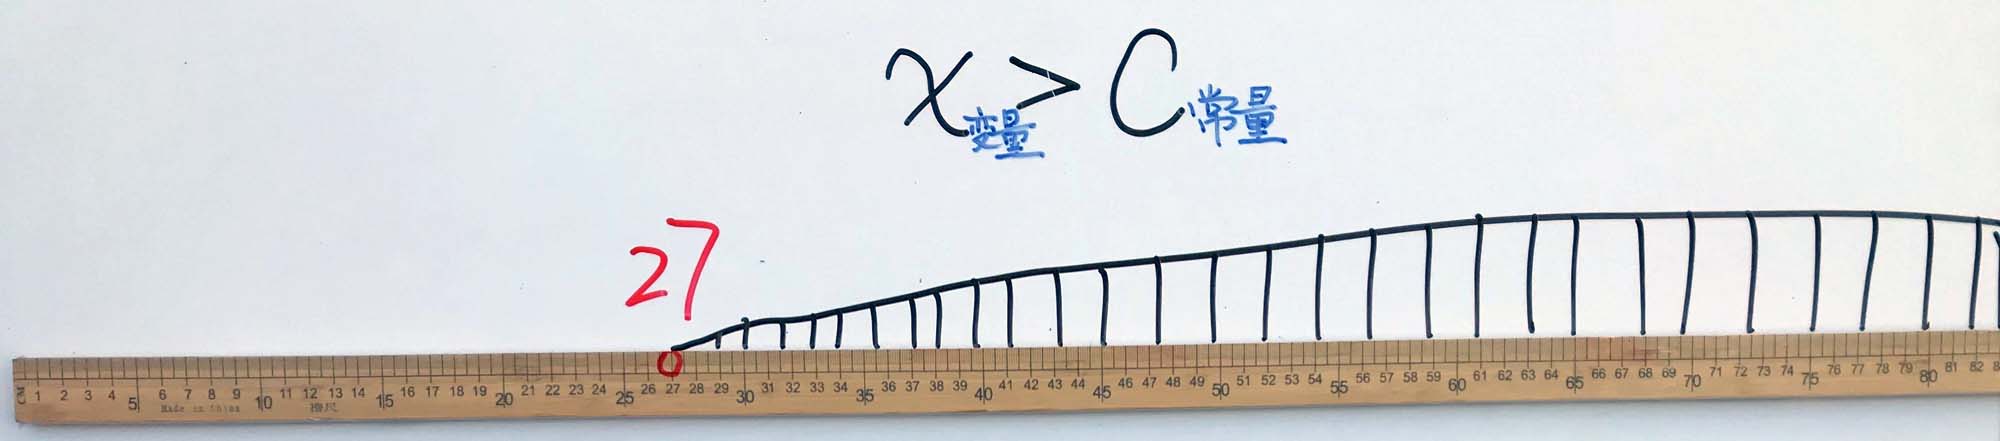 x变量 > C常量
27
0
CM 1 2 3 4 5 6 7 8 9 10 11 12 13 14 15 16 17 18 19 20 21 22 23 24 25 26 27 28 29 30 31 32 33 34 35 36 37 38 39 40 41 42 43 44 45 46 47 48 49 50 51 52 53 54 55 56 57 58 59 60 61 62 63 64 65 66 67 68 69 70 71 72 73 74 75 76 77 78 79 80 81 82
Made in China